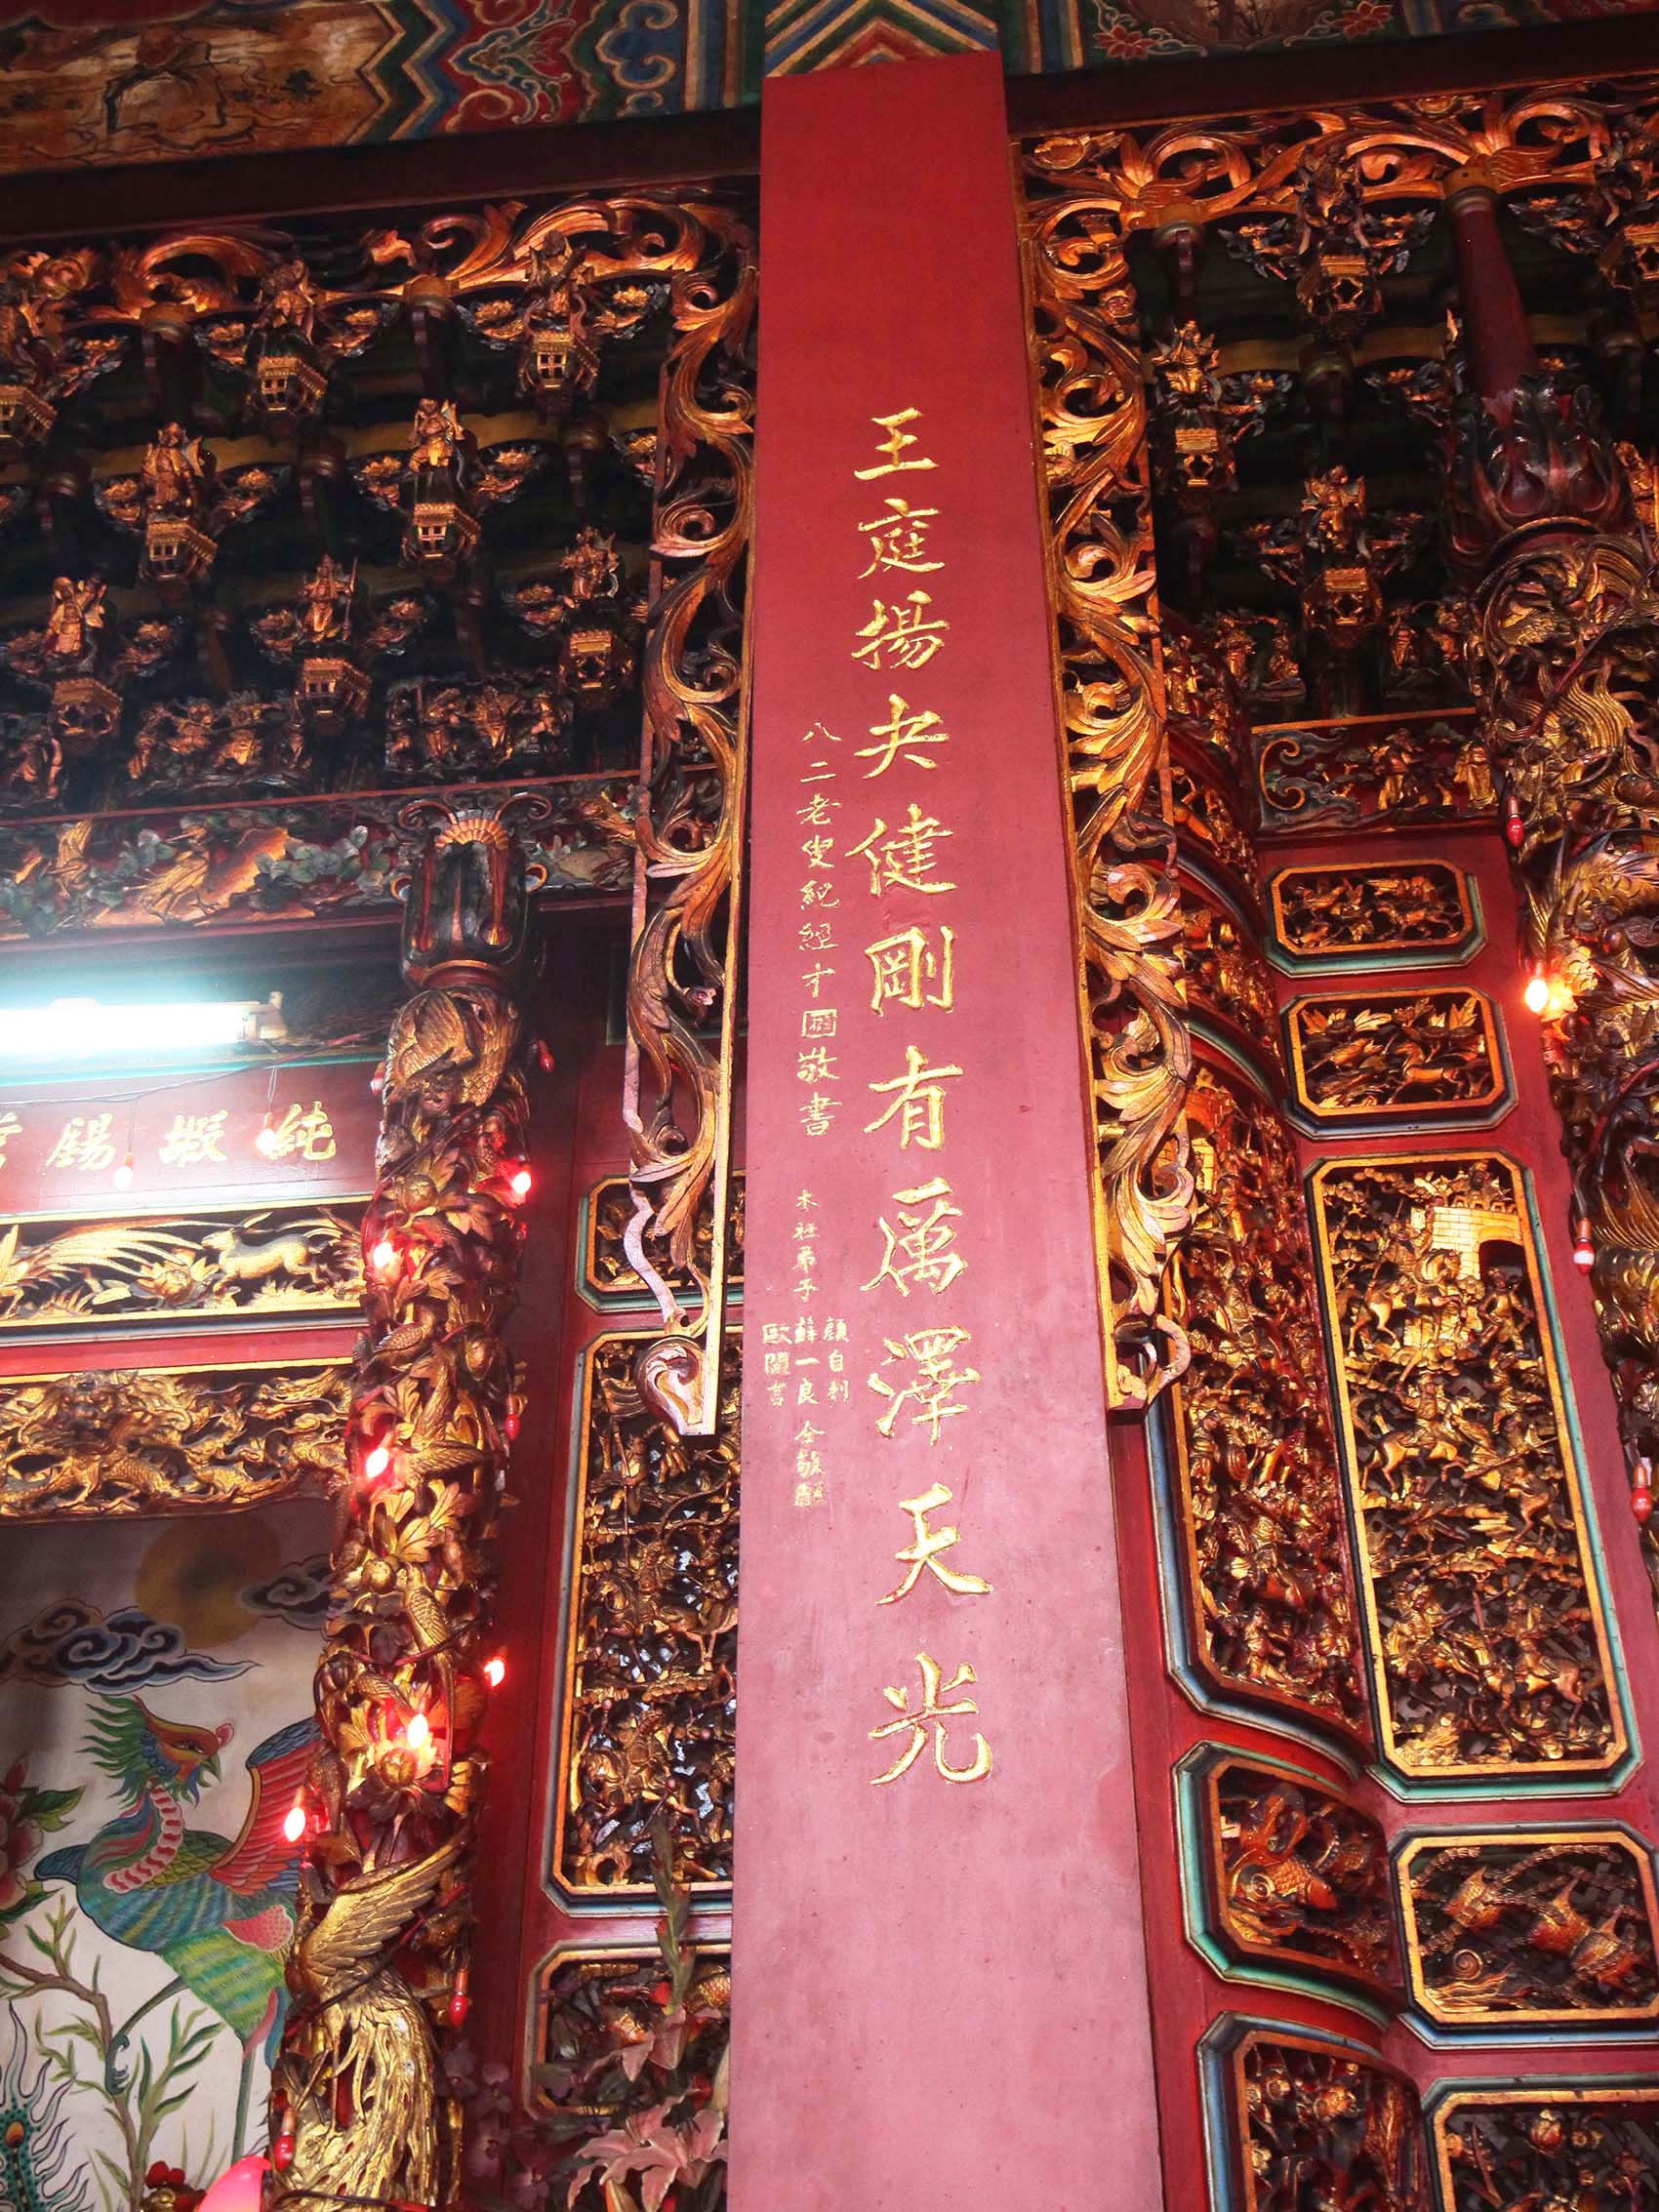 王庭揚夬健剛有厲澤天光
八二老叟紀經才敬書
本社弟子
顏自利
蘇一良
歐闊言
仝敬獻
純嘏錫